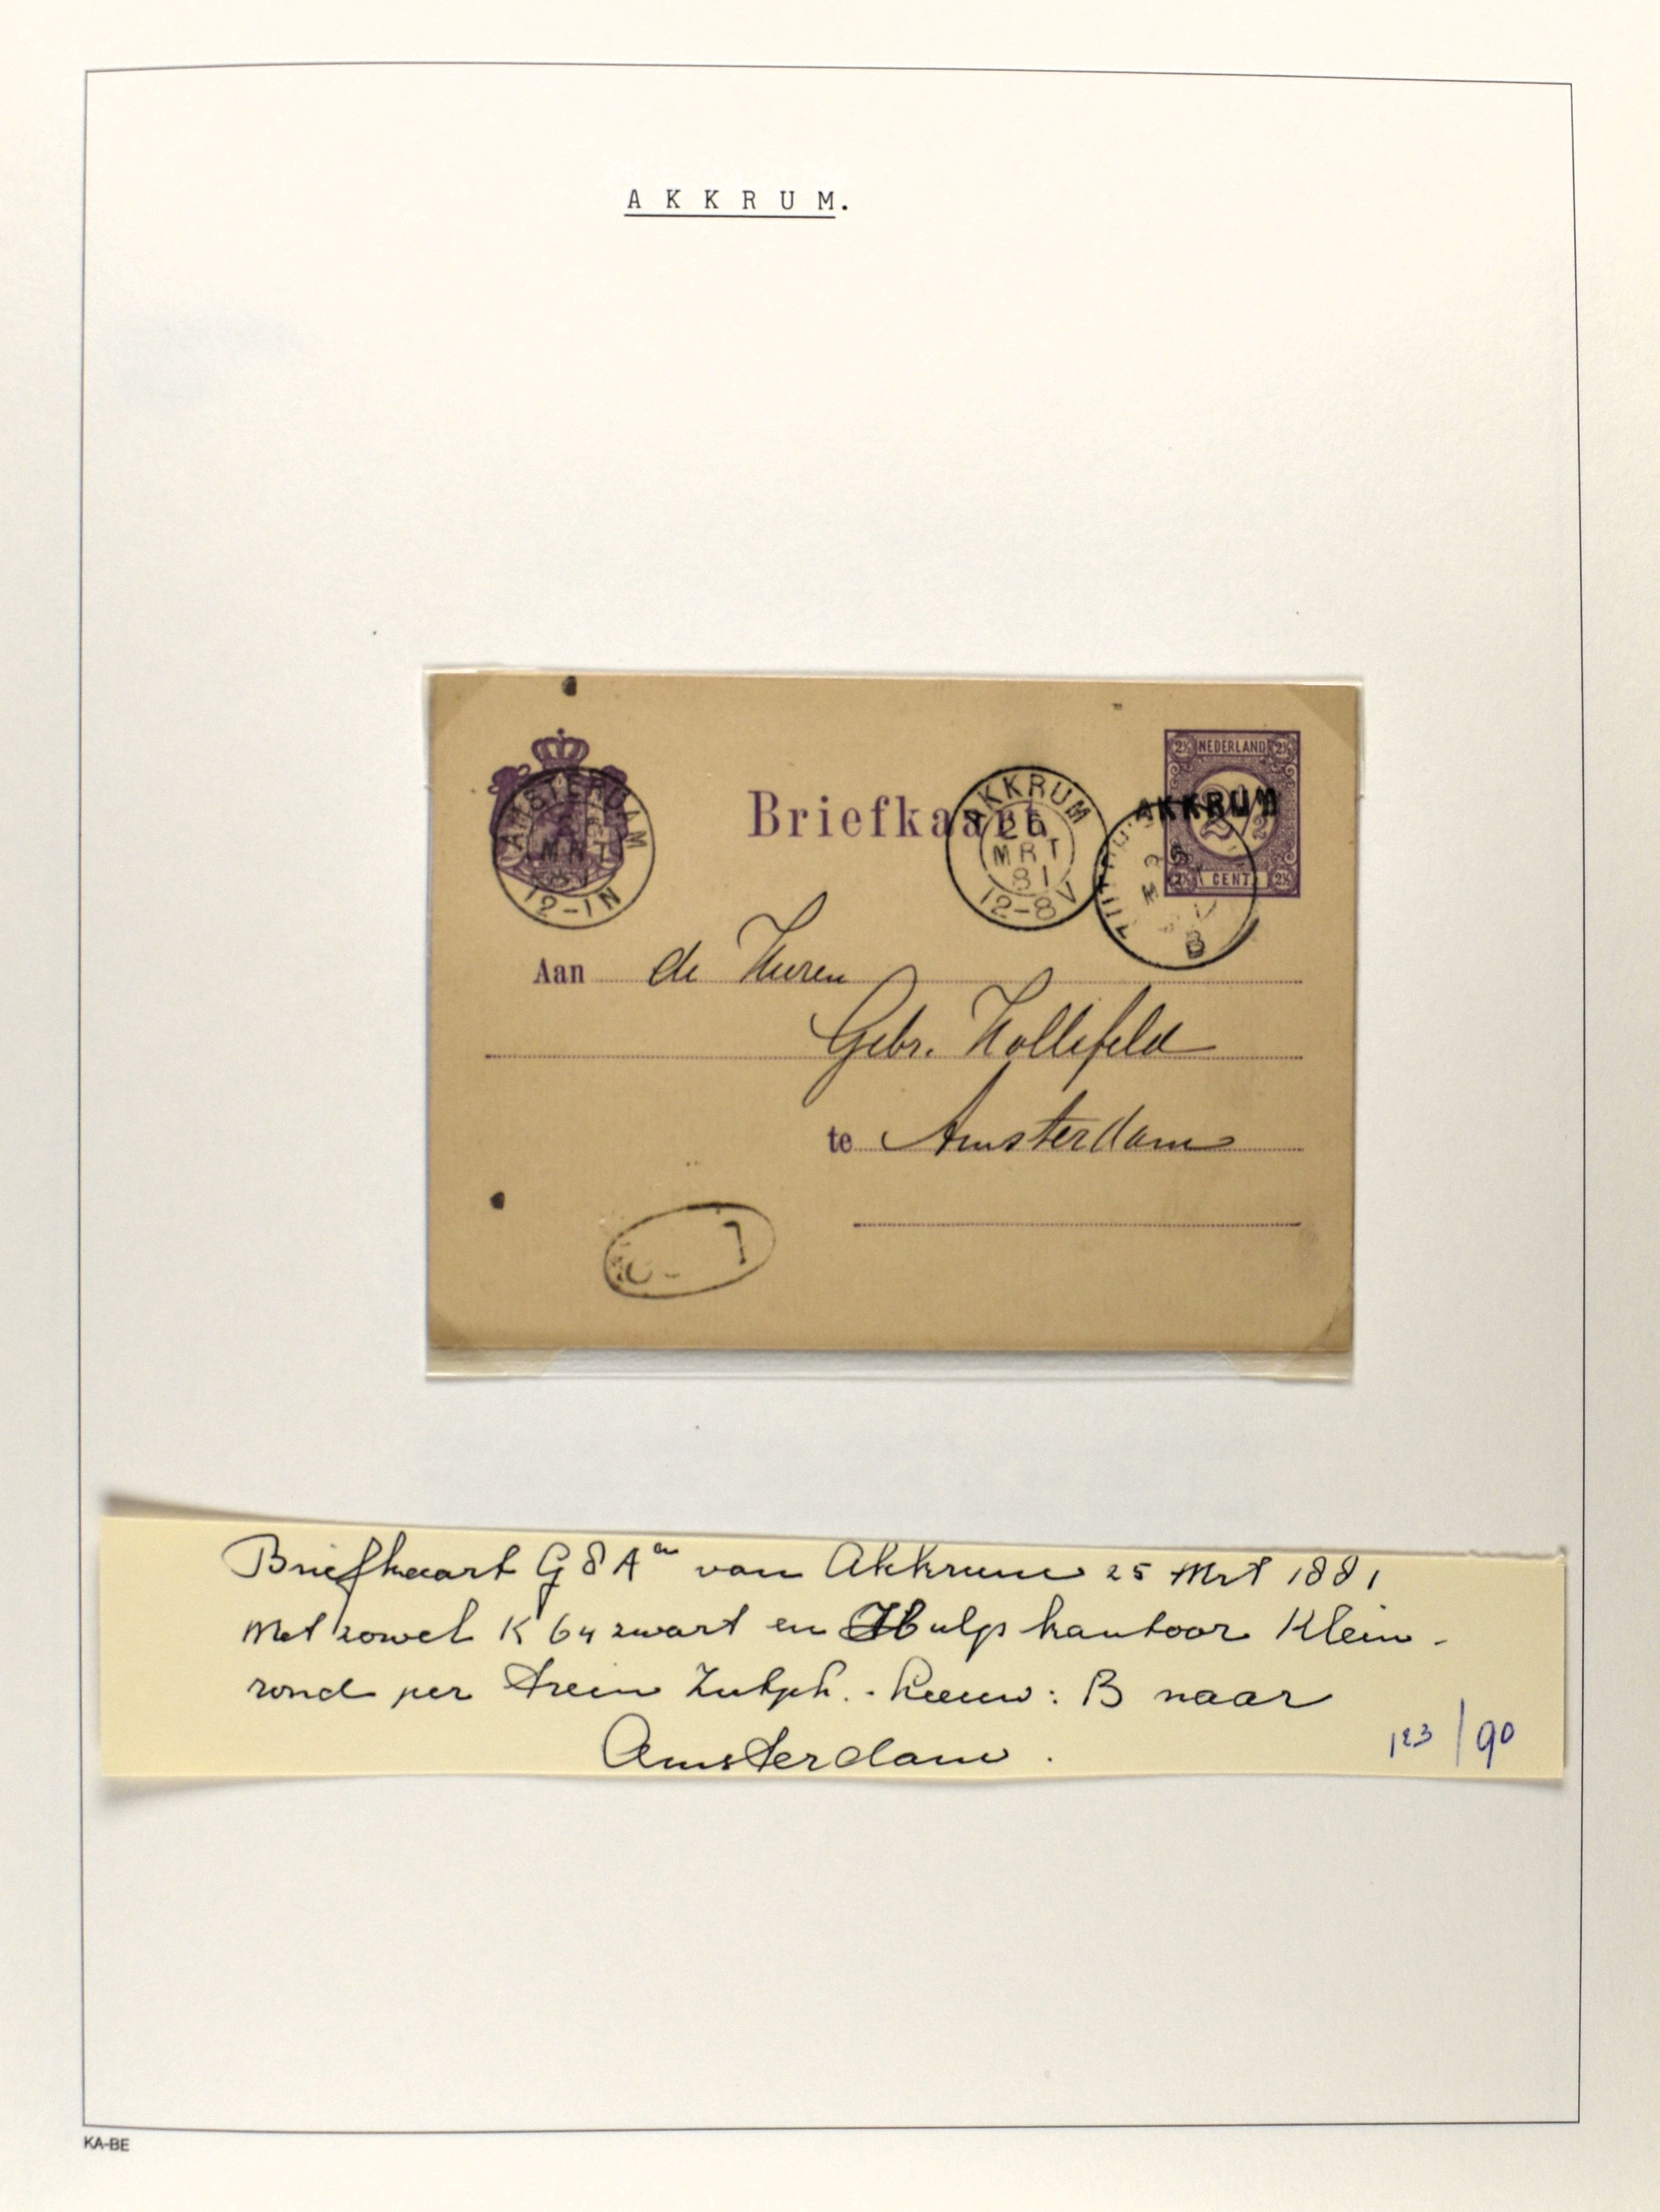 A K K R U M.
2½ NEDERLAND 2½
AKKRUM
2½ CENT 2½
Briefkaart
AMSTERDAM
MRT
12-1N
AKKRUM
MRT
81
12-8V
B
Aan de Heeren
Gebr. Hollefeld
te Amsterdam
Briefkaart G 8 A van Akkrum 25 Mrt 1881
met zowel K 64 zwart en Hulpkantoor Klein-
rond per trein Zutph.-Leeuw: B naar
Amsterdam.
123/90
KA-BE